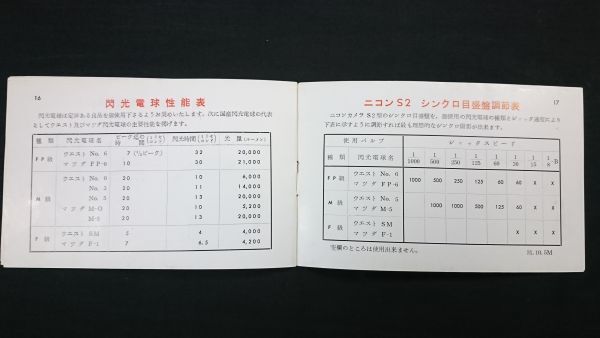 16
閃光電球性能表
閃光電球は定評ある良品を御使用下さるようお奨めいたします。次に国産閃光電球の代表
としてウエスト及びマツダ閃光電球の主要性能を掲げます。
種類 閃光電球名 ピーク迄の時間 閃光時間 光量(ルーメン)
FP級 ウエスト No. 6 7 (½ピーク) 32 20,000
マツダ FP-6 10 30 21,000
M級 ウエスト No. 6 20 10 6,000
No. 3 20 11 14,000
No. 5 20 13 20,000
マツダ M-O 20 10 5,200
M-5 20 13 20,000
F級 ウエスト SM 5 4 4,000
マツダ F-1 7 6.5 4,200
17
ニコンS2 シンクロ目盛盤調節表
ニコンカメラ S2型のシンクロ目盛盤を、御使用の閃光電球の種類とシャッタ速度により
下表に示すように調節すれば最も理想的なシンクロ閃光が出来ます。
使用バルブ シャッタスピード
種類 閃光電球名 1/1000 1/500 1/250 1/125 1/60 1/30 1/15 1/8-B
FP級 ウエスト No. 6 マツダ FP-6 1000 500 250 125 60 60 X X
M級 ウエスト No. 5 マツダ M-5 1000 1000 500 125 60 X X
F級 ウエスト SM マツダ F-1 X X X
空欄のところは使用出来ません。
31.10.5M